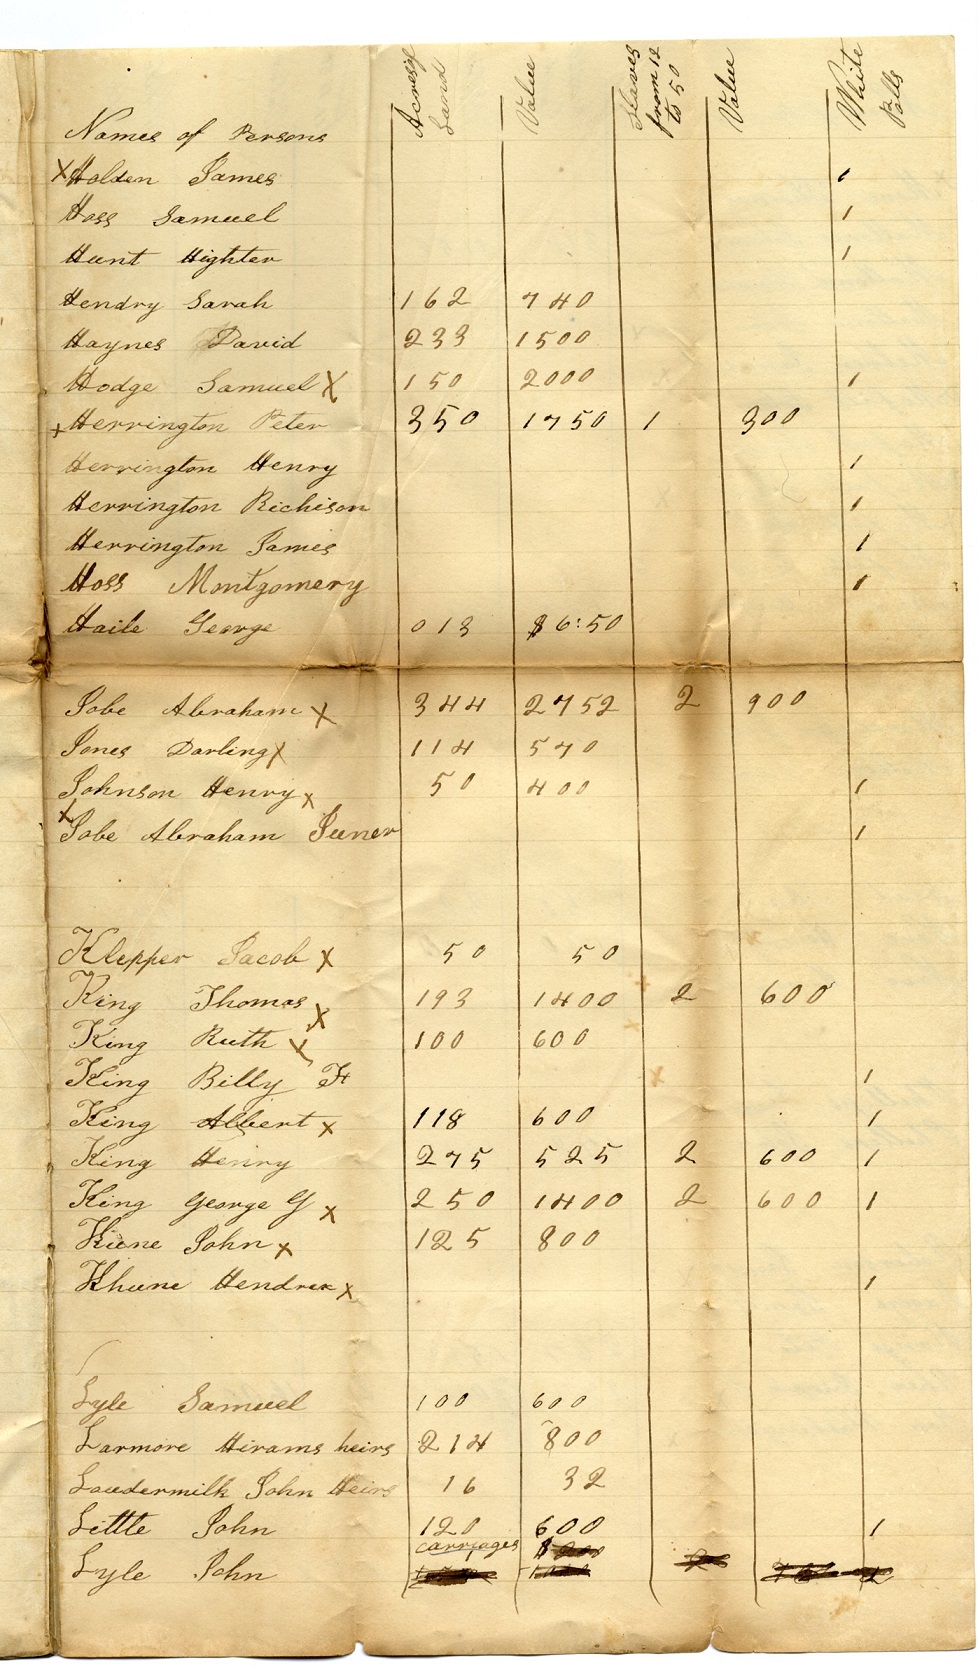 Names of Persons Acres of Land Value Slaves from 12 to 50 Value White Polls
X Holden James 1
Hoss Samuel 1
Hunt Highter 1
Hendry Sarah 162 740
Haynes David 233 1500
Hodge Samuel X 150 2000 1
x Herrington Peter 350 1750 1 300
Herrington Henry 1
Herrington Richison 1
Herrington James 1
Hoss Montgomery 1
Haile George 013 $6:50
Jobe Abraham X 344 2752 2 900
Jones Darling X 114 570
Johnson Henry X 50 400 1
X Jobe Abraham Juner 1
Klepper Jacob X 50 50
King Thomas X 193 1400 2 600
King Ruth X 100 600
King Billy H 1
King Albert X 118 600 1
King Henry 275 525 2 600 1
King George G X 250 1400 2 600 1
Kune John X 125 800
Khune Hendrex X 1
Lyle Samuel 100 600
Larmore Hirams heirs 214 800
Loudermilk John Heirs 16 32
Little John 120 600 1
carriages $200
Lyle John 2